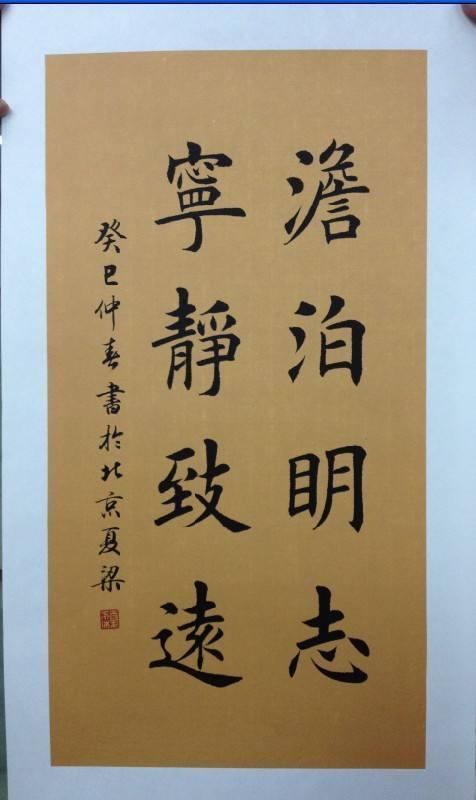 澹泊明志
寧靜致遠
癸巳仲春書於北京夏梁